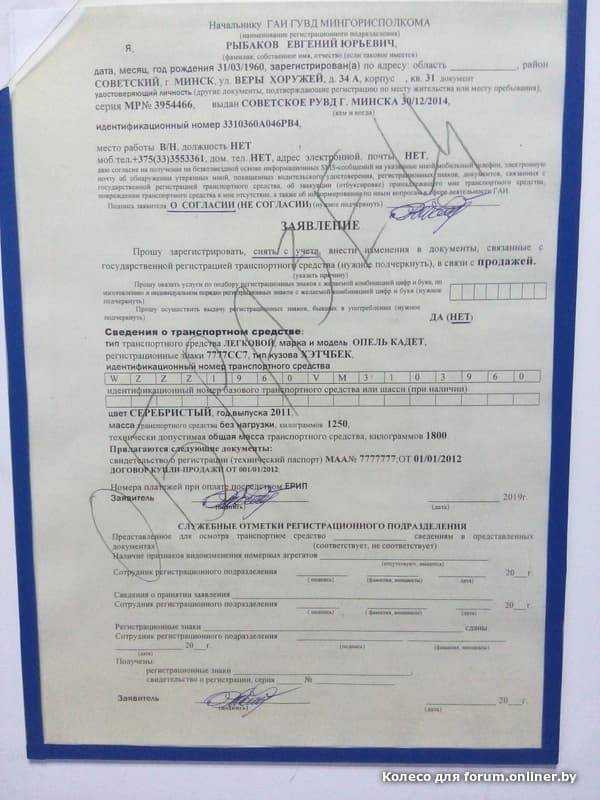 Начальнику ГАИ ГУВД МИНГОРИСПОЛКОМА
(наименование регистрационного подразделения)
Я, РЫБАКОВ ЕВГЕНИЙ ЮРЬЕВИЧ,
(фамилия, собственное имя, отчество (если таковое имеется)
дата, месяц, год рождения 31/03/1960, зарегистрирован(а) по адресу: область ____________, район
СОВЕТСКИЙ, г. МИНСК, ул. ВЕРЫ ХОРУЖЕЙ, д. 34 А, корпус , кв. 31 документ
удостоверяющий личность (другие документы, подтверждающие регистрацию по месту жительства или месту пребывания),
серия МР№ 3954466, выдан СОВЕТСКОЕ РУВД Г. МИНСКА 30/12/2014,
(кем и когда)
идентификационный номер 3310360А046РВ4,
место работы В/Н, должность НЕТ
моб.тел.+375(33)3553361, дом. тел. НЕТ, адрес электронной. почты НЕТ,
даю согласие на получение на безвозмездной основе информационных SMS-сообщений на указанные мной мобильный телефон, электронную
почту об обнаружении утерянных мной, похищенных водительского удостоверения, регистрационных знаков, документов, связанных с
государственной регистрацией транспортного средства, об эвакуации (отбуксировке) принадлежащего мне транспортного средства,
повреждении транспортного средства в мое отсутствие, а также об информировании по иным вопросам в сфере деятельности ГАИ.
Подпись заявителя О СОГЛАСИИ (НЕ СОГЛАСИИ) (нужное подчеркнуть)
ЗАЯВЛЕНИЕ
Прошу зарегистрировать, снять с учета, внести изменения в документы, связанные с
государственной регистрацией транспортного средства (нужное подчеркнуть), в связи с продажей.
(указать причину)
Прошу оказать услуги по подбору регистрационных знаков с желаемой комбинацией цифр и букв, по
изготовлению в индивидуальном порядке регистрационных знаков с желаемой комбинацией цифр и букв (нужное
подчеркнуть)
Прошу осуществить выдачу регистрационных знаков, бывших в употреблении (нужное
подчеркнуть) ДА (НЕТ)
Сведения о транспортном средстве:
тип транспортного средства ЛЕГКОВОЙ, марка и модель ОПЕЛЬ КАДЕТ,
регистрационные знаки 7777СС7, тип кузова ХЭТЧБЕК,
идентификационный номер транспортного средства
W Z Z Z 1 9 6 0 V M 3 1 0 3 9 6 0
идентификационный номер базового транспортного средства или шасси (при наличии)
цвет СЕРЕБРИСТЫЙ, год выпуска 2011.
масса транспортного средства без нагрузки, килограммов 1250,
технически допустимая общая масса транспортного средства, килограммов 1800
Прилагаются следующие документы:
свидетельство о регистрации (технический паспорт) МАА№ 7777777;ОТ 01/01/2012
ДОГОВОР КУПЛИ-ПРОДАЖИ ОТ 001/01/2012
Номера платежей при оплате посредством ЕРИП
Заявитель ____________ ____________ 2019г.
(подпись) (дата)
СЛУЖЕБНЫЕ ОТМЕТКИ РЕГИСТРАЦИОННОГО ПОДРАЗДЕЛЕНИЯ
Представленное для осмотра транспортное средство ____________ сведениям в представленных
документах (соответствует, не соответствует)
Наличие признаков видоизменения номерных агрегатов ____________
(отсутствуют, имеются)
Сотрудник регистрационного подразделения ____________ 20___г
(подпись) (фамилия, инициалы) дата
Сведения о принятии заявления ____________
Сотрудник регистрационного подразделения ____________ 20___г
(подпись) (фамилия, инициалы) (дата)
Регистрационные знаки ____________ сданы
Сотрудник регистрационного подразделения ____________
____________ 20___г. (подпись) (фамилия, инициалы)
(дата)
Получены:
регистрационные знаки ____________
свидетельство о регистрации, серия ______ № ____________
Заявитель ____________ ____________ 20___г.
(подпись) (дата)
Колесо для forum.onliner.by